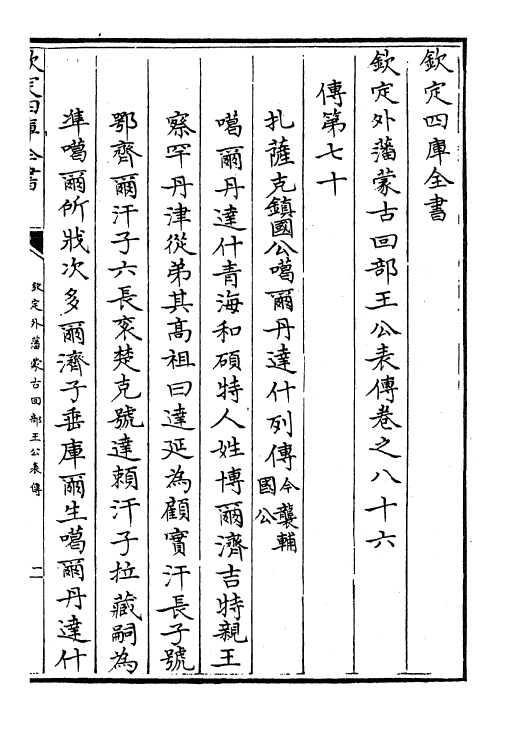 欽定四庫全書
欽定外藩蒙古回部王公表傳卷之八十六
傳第七十
扎薩克鎮國公噶爾丹達什列傳今襲輔國公
噶爾丹達什青海和碩特人姓博爾濟吉特親王
察罕丹津從弟其高祖曰達延為顧實汗長子號
鄂齊爾汗子六長袞楚克號達賴汗子拉藏嗣為
準噶爾所戕次多爾濟子垂庫爾生噶爾丹達什
欽定四庫全書
欽定外藩蒙古回部王公表傳